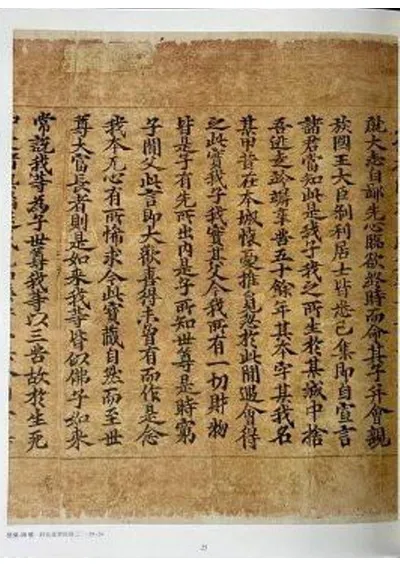 就大志自鄙先心臨欲終時而命其子并會親
族國王大臣刹利居士皆悉已集即自宣言
諸君當知此是我子我之所生於某城中捨
吾逃走跉跰辛苦五十餘年其本字某我名
某甲昔在本城懷憂推覓忽於此間遇會得
之此實我子我實其父今我所有一切財物
皆是子有先所出內是子所知世尊是時窮
子聞父此言即大歡喜得未曾有而作是念
我本无心有所悕求今此寶藏自然而至世
尊大富長者則是如來我等皆似佛子如來
常說我等為子世尊我等以三苦故於生死
25